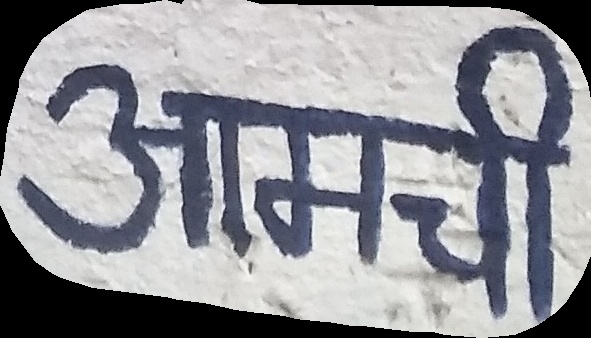 आमची